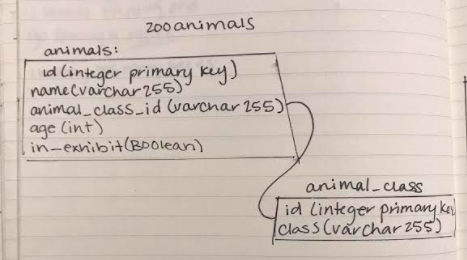 zooanimals
animals:
id (integer primary key)
name(varchar 255)
animal_class_id (varchar 255)
age (int)
in-exhibit (Boolean)
animal_class
id (integer primary key
class (varchar 255)